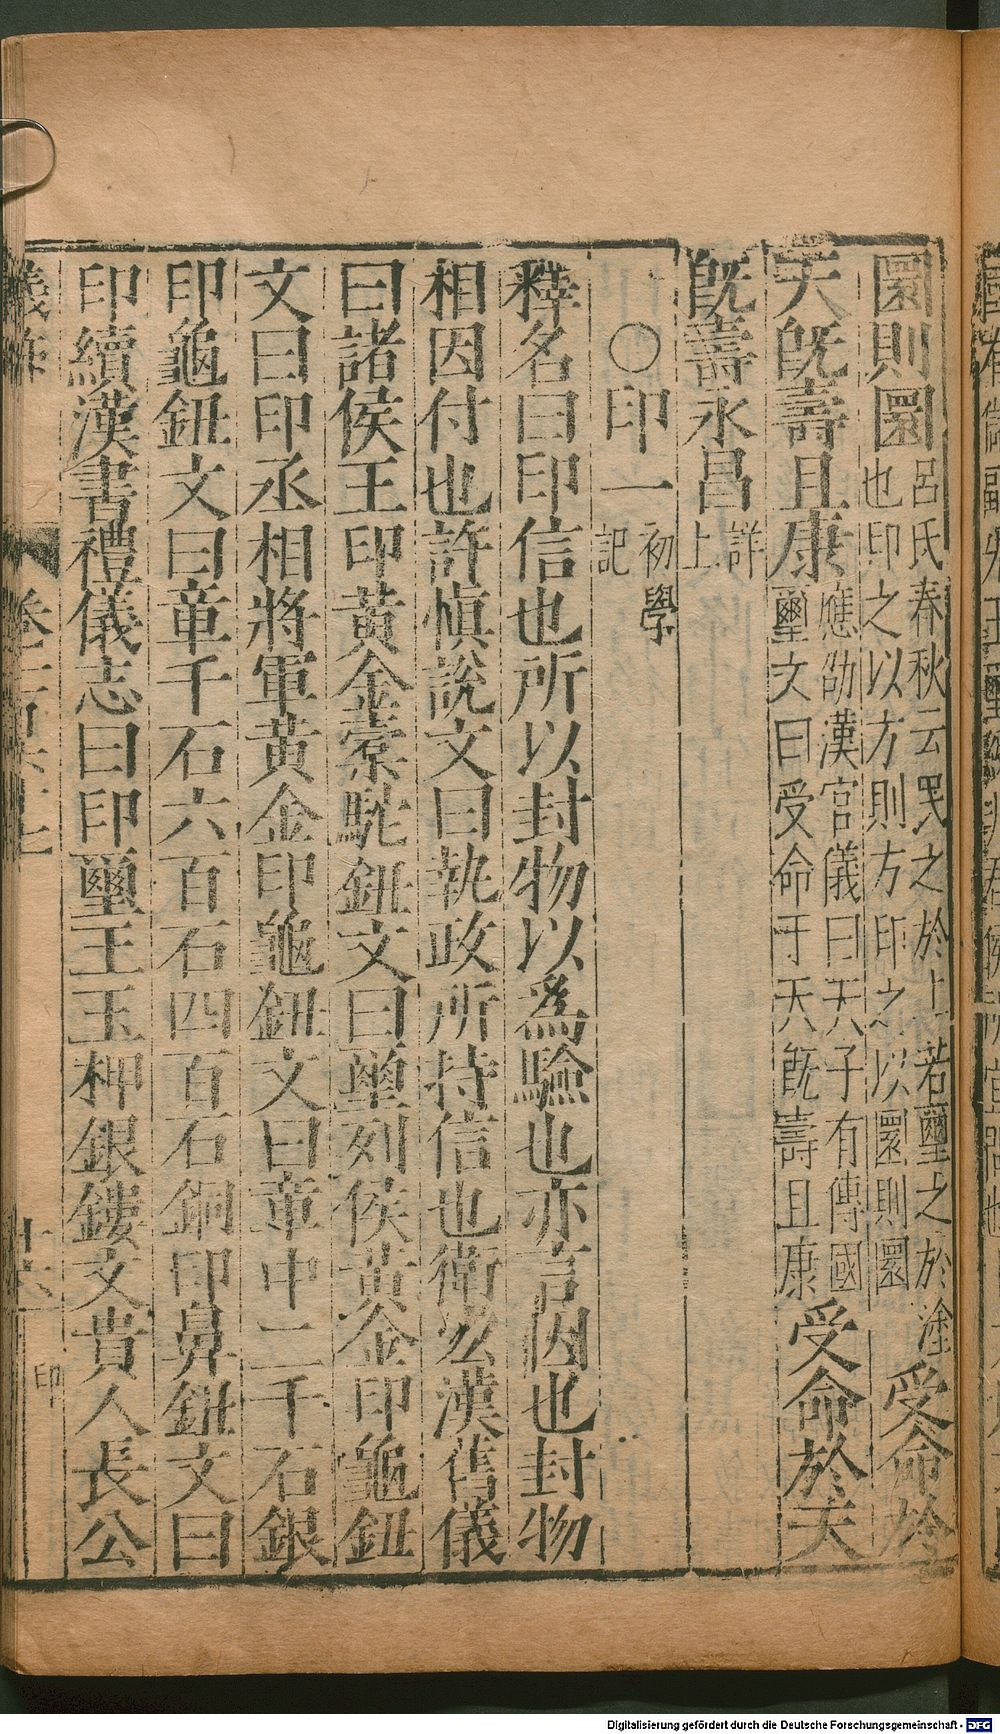 圜則圜呂氏春秋云民之於上若璽之於塗也印之以方則方印之以圜則圜受命於
天旣壽且康應劭漢宮儀曰天子有傳國璽文曰受命于天旣壽且康受命於天
旣壽永昌詳上
○印一初學記
釋名曰印信也所以封物以爲驗也亦言因也封物
相因付也許愼說文曰執政所持信也衛宏漢舊儀
曰諸侯王印黃金橐駞鈕文曰璽列侯黃金印龜鈕
文曰印丞相將軍黃金印龜鈕文曰章中二千石銀
印龜鈕文曰章千石六百石四百石銅印鼻鈕文曰
印續漢書禮儀志曰印璽王玉柙銀鏤文貴人長公
卷一百
十六
印
Digitalisierung gefördert durch die Deutsche Forschungsgemeinschaft - DFG